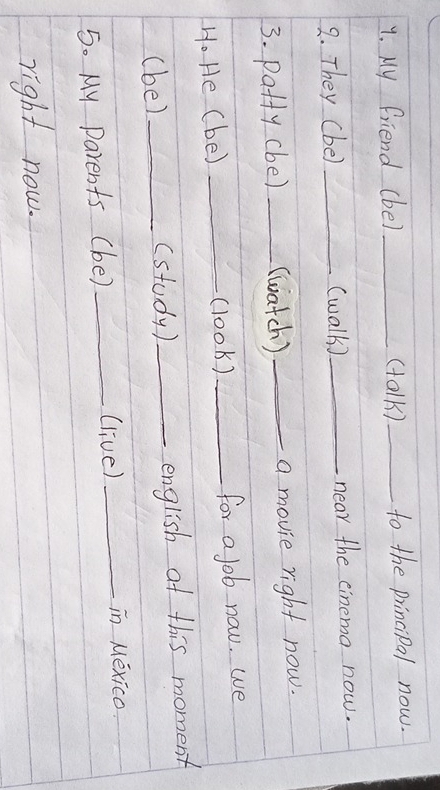 1. My friend (be) ______ (talk) ____ to the principal now.
2. They (be) ______ (walk) ______ near the cinema now.
3. Patty (be) ____ (watch) ____ a movie right now.
4. He (be) ______ (look) ____ for a job now. We
(be) ______ (study) ____ english at this moment
5. My Parents (be) ______ (live) ______ in México
right now.